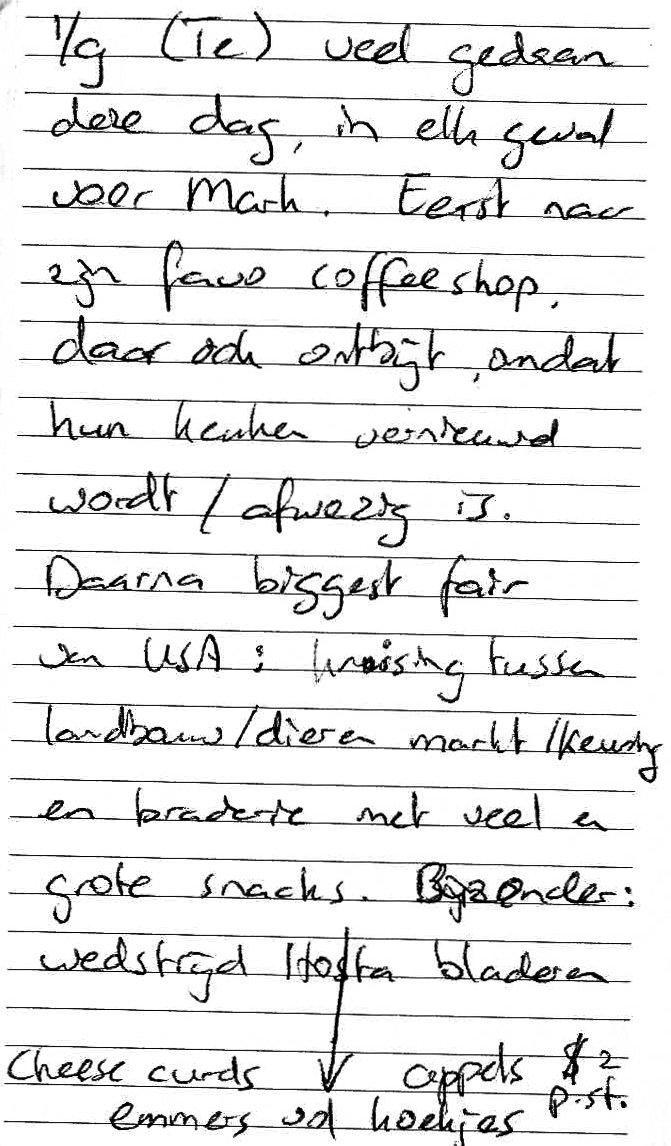 1/9 (Te) veel gedaan
deze dag, in elk geval
voor Mark. Eerst naar
zijn favo coffeeshop,
daar ook ontbijt, omdat
hun keuken vernieuwd
wordt / afwezig is.
Daarna biggest fair
van USA : kruising tussen
landbouw/dieren markt /keuring
en braderie met veel en
grote snacks. Bijzonder:
wedstrijd Hosta bladeren
Cheese curds appels $ 2
emmers vd koekjes p.st.